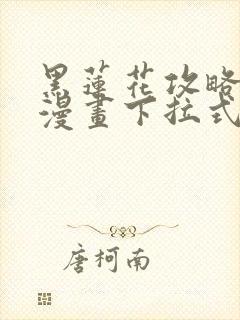 黑蓮花攻略
漫畫下拉式
唐柯南